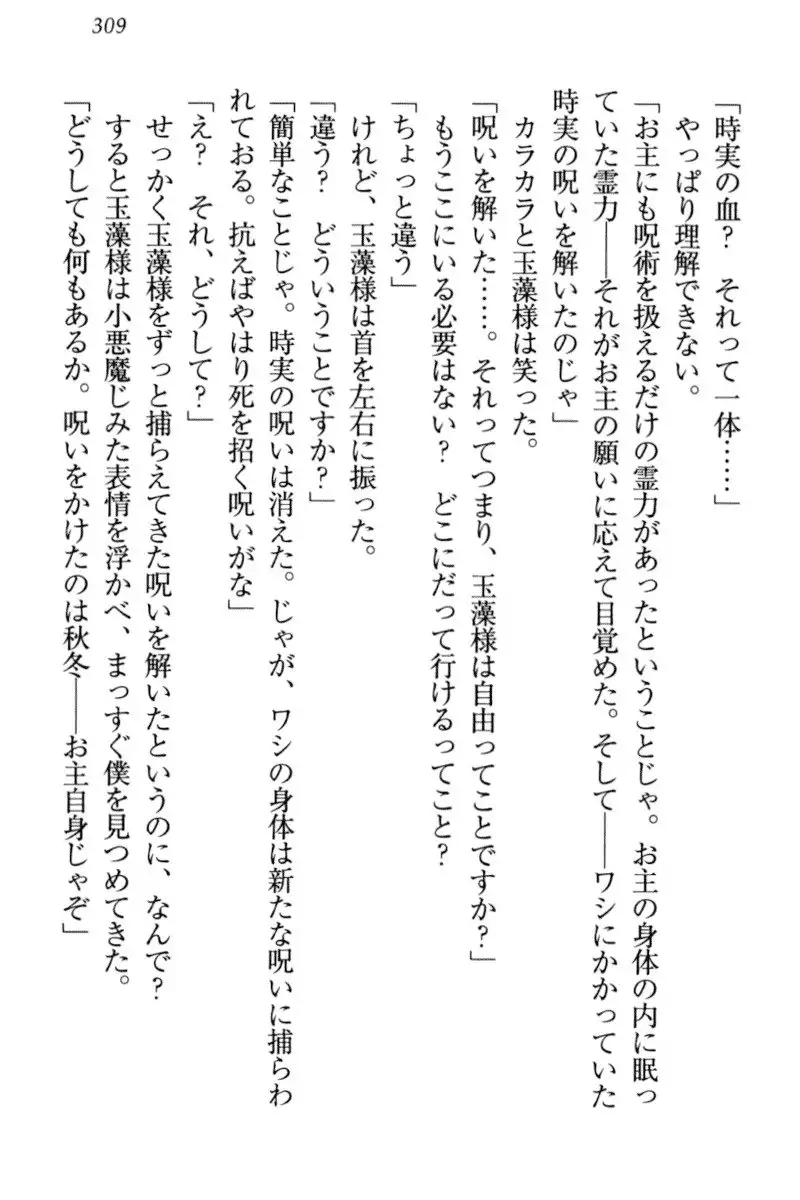 309
「時実の血？　それって一体……」
　やっぱり理解できない。
「お主にも呪術を扱えるだけの霊力があったということじゃ。お主の身体の内に眠っ
ていた霊力――それがお主の願いに応えて目覚めた。そして――ワシにかかっていた
時実の呪いを解いたのじゃ」
　カラカラと玉藻様は笑った。
「呪いを解いた……。それってつまり、玉藻様は自由ってことですか？」
　もうここにいる必要はない？　どこにだって行けるってこと？
「ちょっと違う」
　けれど、玉藻様は首を左右に振った。
「違う？　どういうことですか？」
「簡単なことじゃ。時実の呪いは消えた。じゃが、ワシの身体は新たな呪いに捕らわ
れておる。抗えばやはり死を招く呪いがな」
「え？　それ、どうして？」
　せっかく玉藻様をずっと捕らえてきた呪いを解いたというのに、なんで？
　すると玉藻様は小悪魔じみた表情を浮かべ、まっすぐ僕を見つめてきた。
「どうしても何もあるか。呪いをかけたのは秋冬――お主自身じゃぞ」